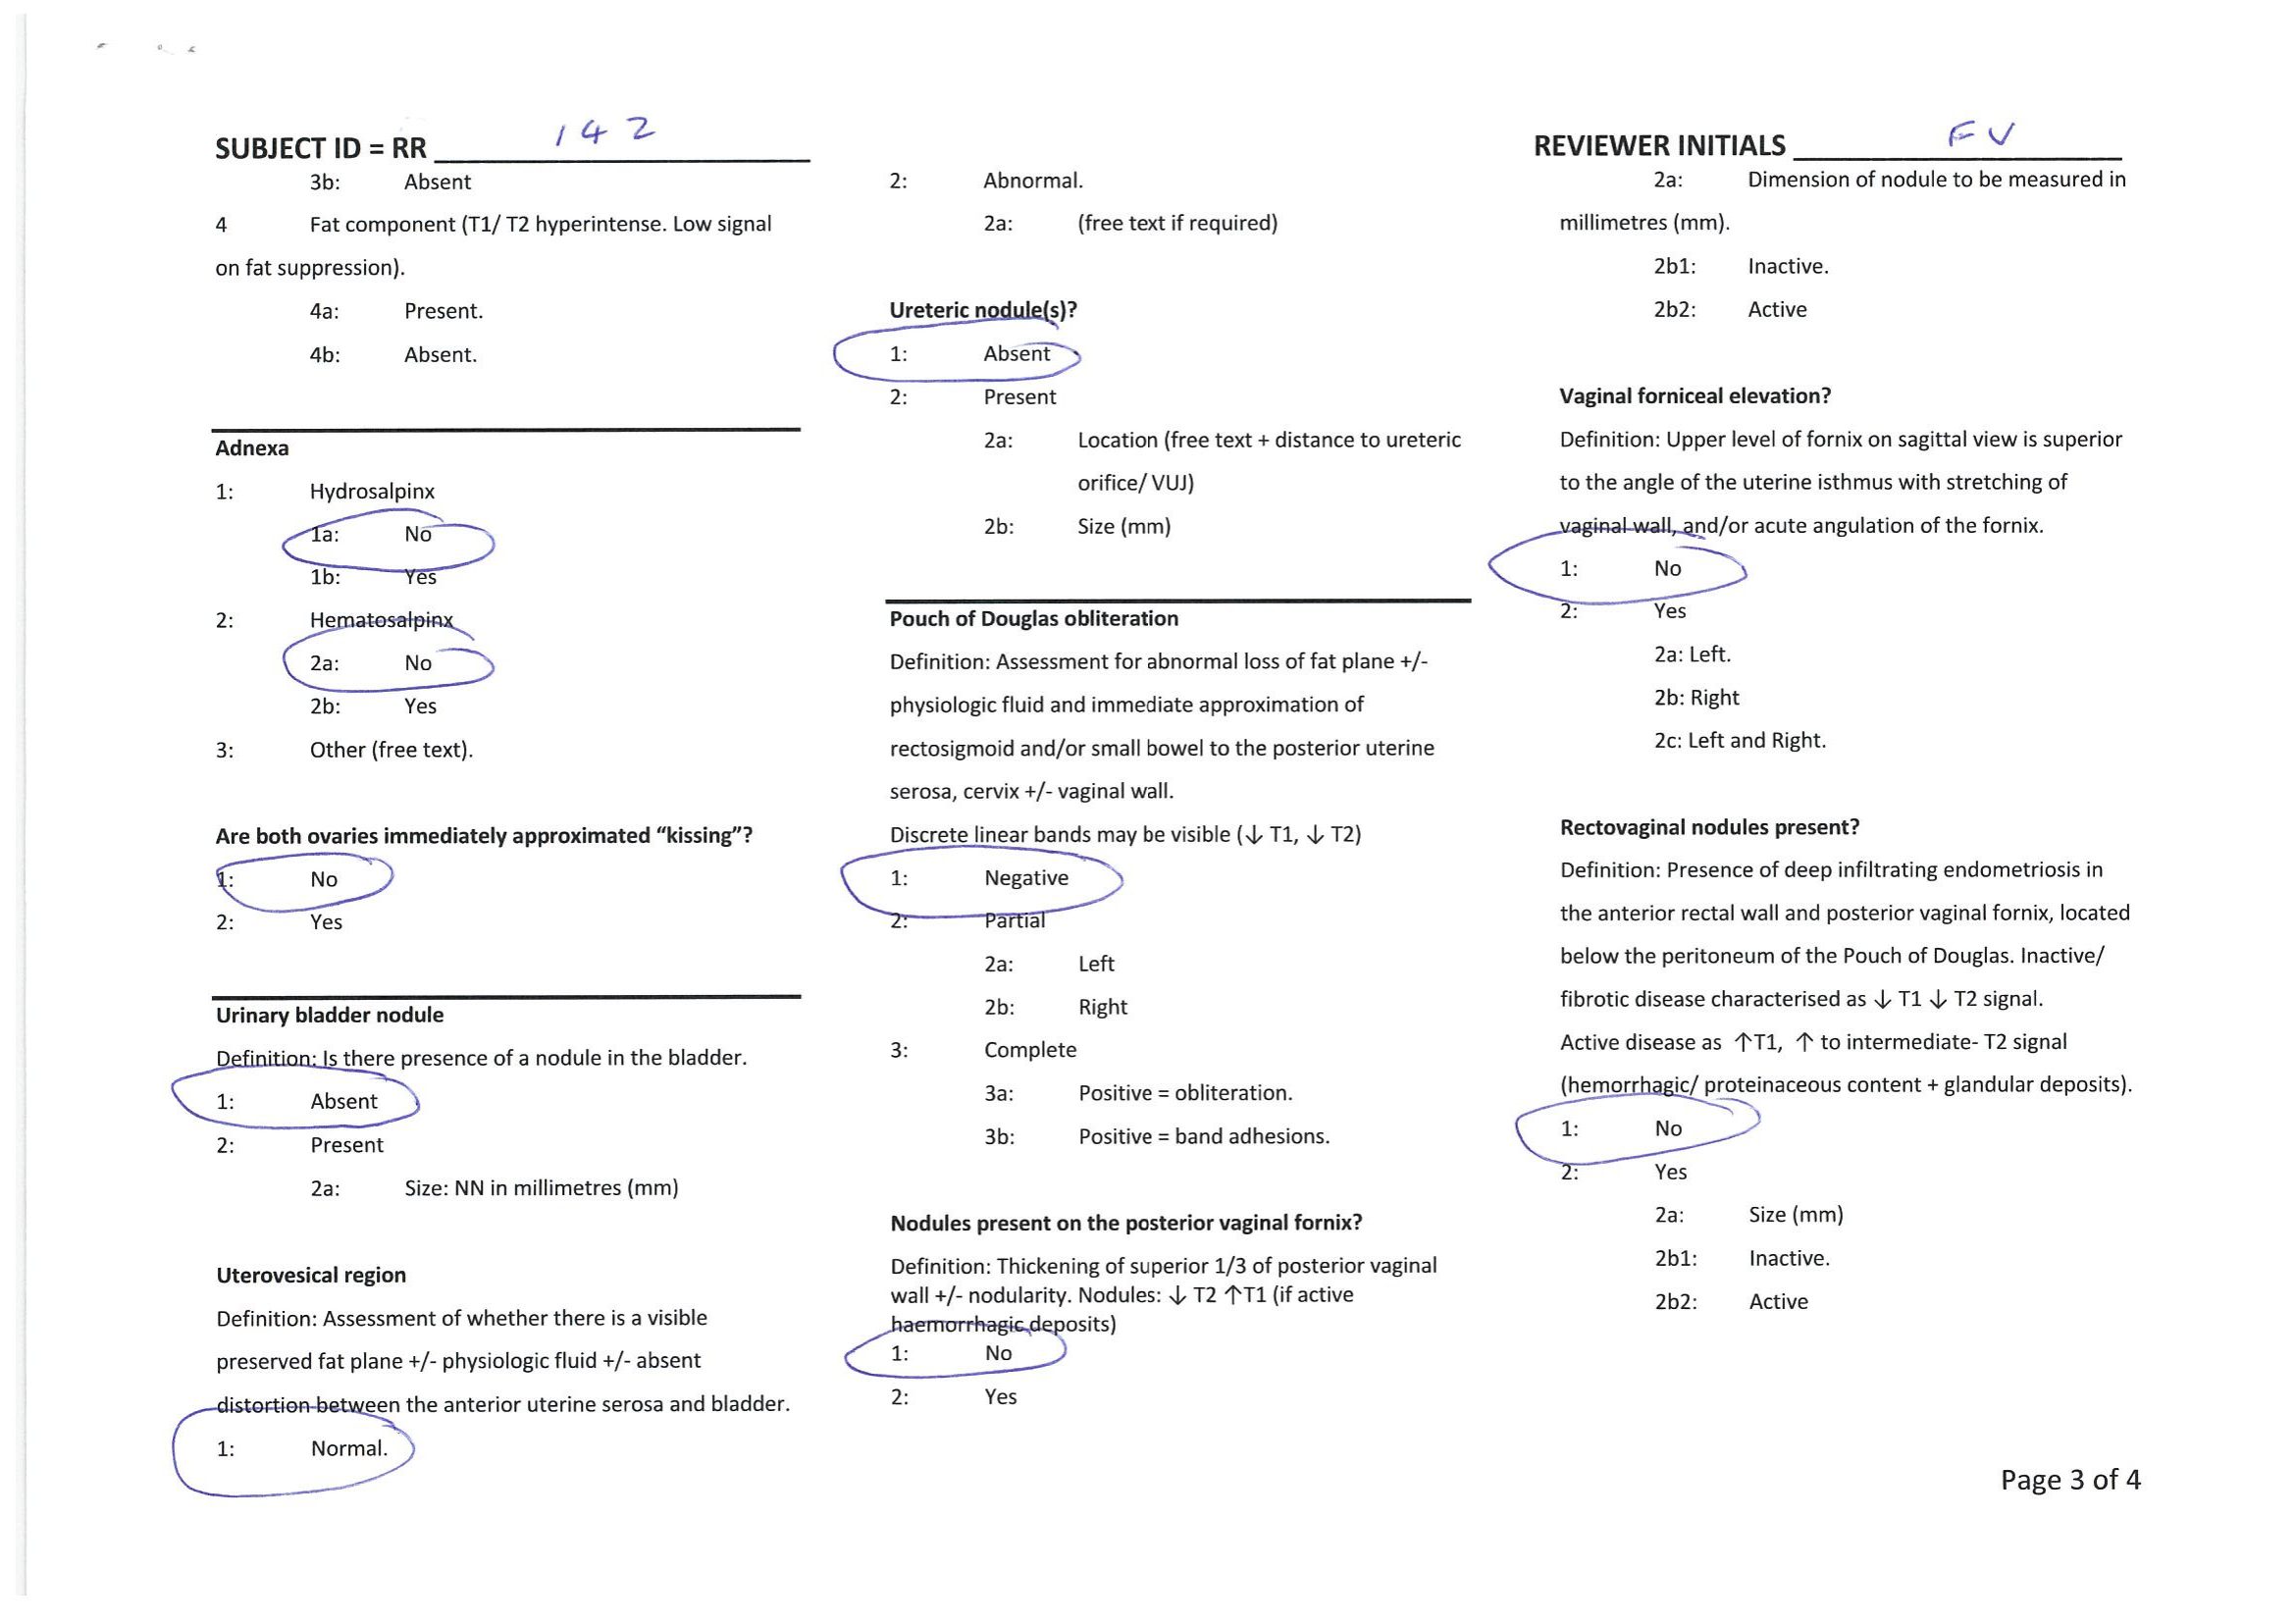 SUBJECT ID = RR 142
3b: Absent
4 Fat component (T1/ T2 hyperintense. Low signal
on fat suppression).
4a: Present.
4b: Absent.
Adnexa
1: Hydrosalpinx
1a: No
1b: Yes
2: Hematosalpinx
2a: No
2b: Yes
3: Other (free text).
Are both ovaries immediately approximated “kissing”?
1: No
2: Yes
Urinary bladder nodule
Definition: Is there presence of a nodule in the bladder.
1: Absent
2: Present
2a: Size: NN in millimetres (mm)
Uterovesical region
Definition: Assessment of whether there is a visible
preserved fat plane +/- physiologic fluid +/- absent
distortion between the anterior uterine serosa and bladder.
1: Normal.
2: Abnormal.
2a: (free text if required)
Ureteric nodule(s)?
1: Absent
2: Present
2a: Location (free text + distance to ureteric
orifice/ VUJ)
2b: Size (mm)
Pouch of Douglas obliteration
Definition: Assessment for abnormal loss of fat plane +/-
physiologic fluid and immediate approximation of
rectosigmoid and/or small bowel to the posterior uterine
serosa, cervix +/- vaginal wall.
Discrete linear bands may be visible (↓ T1, ↓ T2)
1: Negative
2: Partial
2a: Left
2b: Right
3: Complete
3a: Positive = obliteration.
3b: Positive = band adhesions.
Nodules present on the posterior vaginal fornix?
Definition: Thickening of superior 1/3 of posterior vaginal
wall +/- nodularity. Nodules: ↓ T2 ↑T1 (if active
haemorrhagic deposits)
1: No
2: Yes
REVIEWER INITIALS FV
2a: Dimension of nodule to be measured in
millimetres (mm).
2b1: Inactive.
2b2: Active
Vaginal forniceal elevation?
Definition: Upper level of fornix on sagittal view is superior
to the angle of the uterine isthmus with stretching of
vaginal wall, and/or acute angulation of the fornix.
1: No
2: Yes
2a: Left.
2b: Right
2c: Left and Right.
Rectovaginal nodules present?
Definition: Presence of deep infiltrating endometriosis in
the anterior rectal wall and posterior vaginal fornix, located
below the peritoneum of the Pouch of Douglas. Inactive/
fibrotic disease characterised as ↓ T1 ↓ T2 signal.
Active disease as ↑T1, ↑ to intermediate- T2 signal
(hemorrhagic/ proteinaceous content + glandular deposits).
1: No
2: Yes
2a: Size (mm)
2b1: Inactive.
2b2: Active
Page 3 of 4